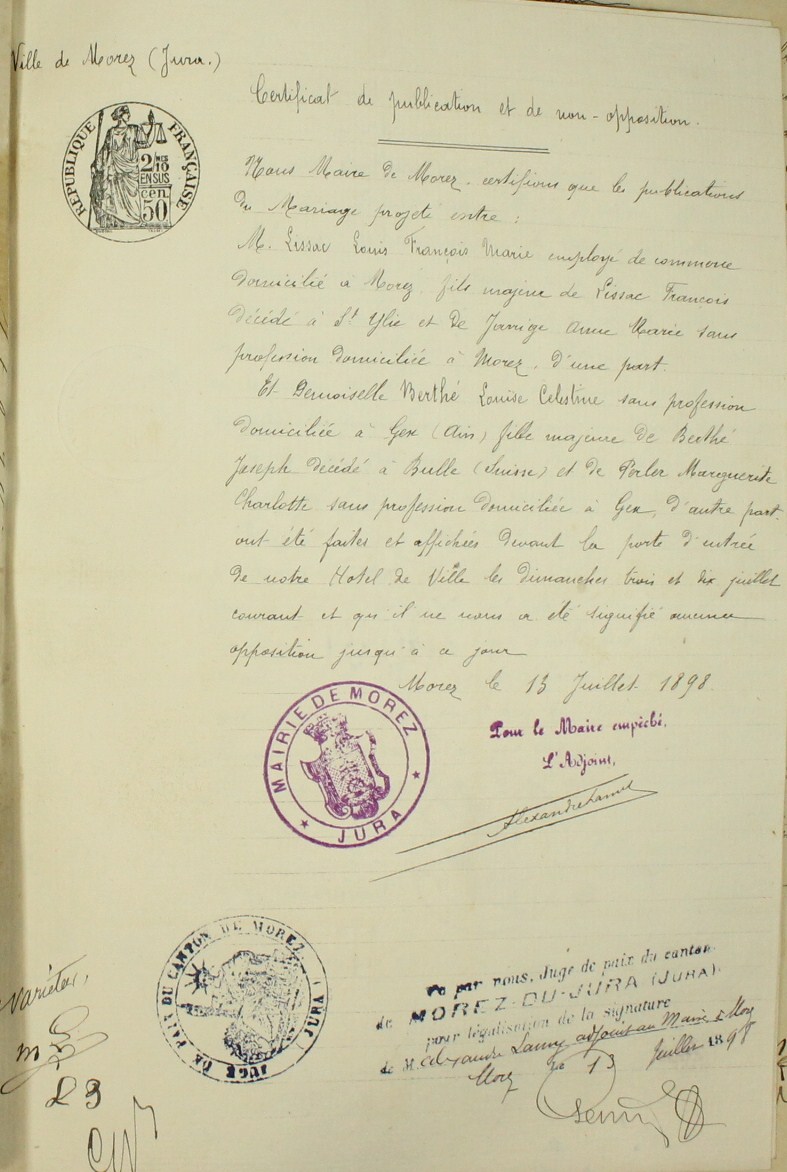 Ville de Morez (Jura.)
Certificat de publication et de non-opposition.
RÉPUBLIQUE FRANÇAISE
2 MES
10
EN SUS
50
cen
Nous Maire de Morez, certifions que les publications
du Mariage projeté entre :
M. Lissac Louis François Marie employé de commerce
domicilié à Morez, fils majeur de Lissac François
décédé à St Ylie et de Jarrige Anne Marie sans
profession domiciliée à Morez, d'une part.
Et Demoiselle Berthé Louise Celestine sans profession
domiciliée à Gex (Ain) fille majeure de Berthé
Joseph décédé à Bulle (Suisse) et de Perler Marguerite
Charlotte sans profession domiciliée à Gex, d'autre part.
ont été faites et affichées devant la porte d'entrée
de notre Hotel de Ville les dimanches trois et dix juillet
courant et qu'il ne nous a été signifié aucune
opposition jusqu'à ce jour
Morez le 13 Juillet 1898
MAIRIE DE MOREZ
JURA
Pour le Maire empêché,
L'Adjoint,
JUGE DE PAIX DU CANTON DE MOREZ (JURA)
Vu par nous, Juge de paix du canton
de MOREZ-DU-JURA (JURA).
pour légalisation de la signature
de M. Alexandre Lamy adjoint au Maire de Morez
Morez le 13 Juillet 1898
L 3